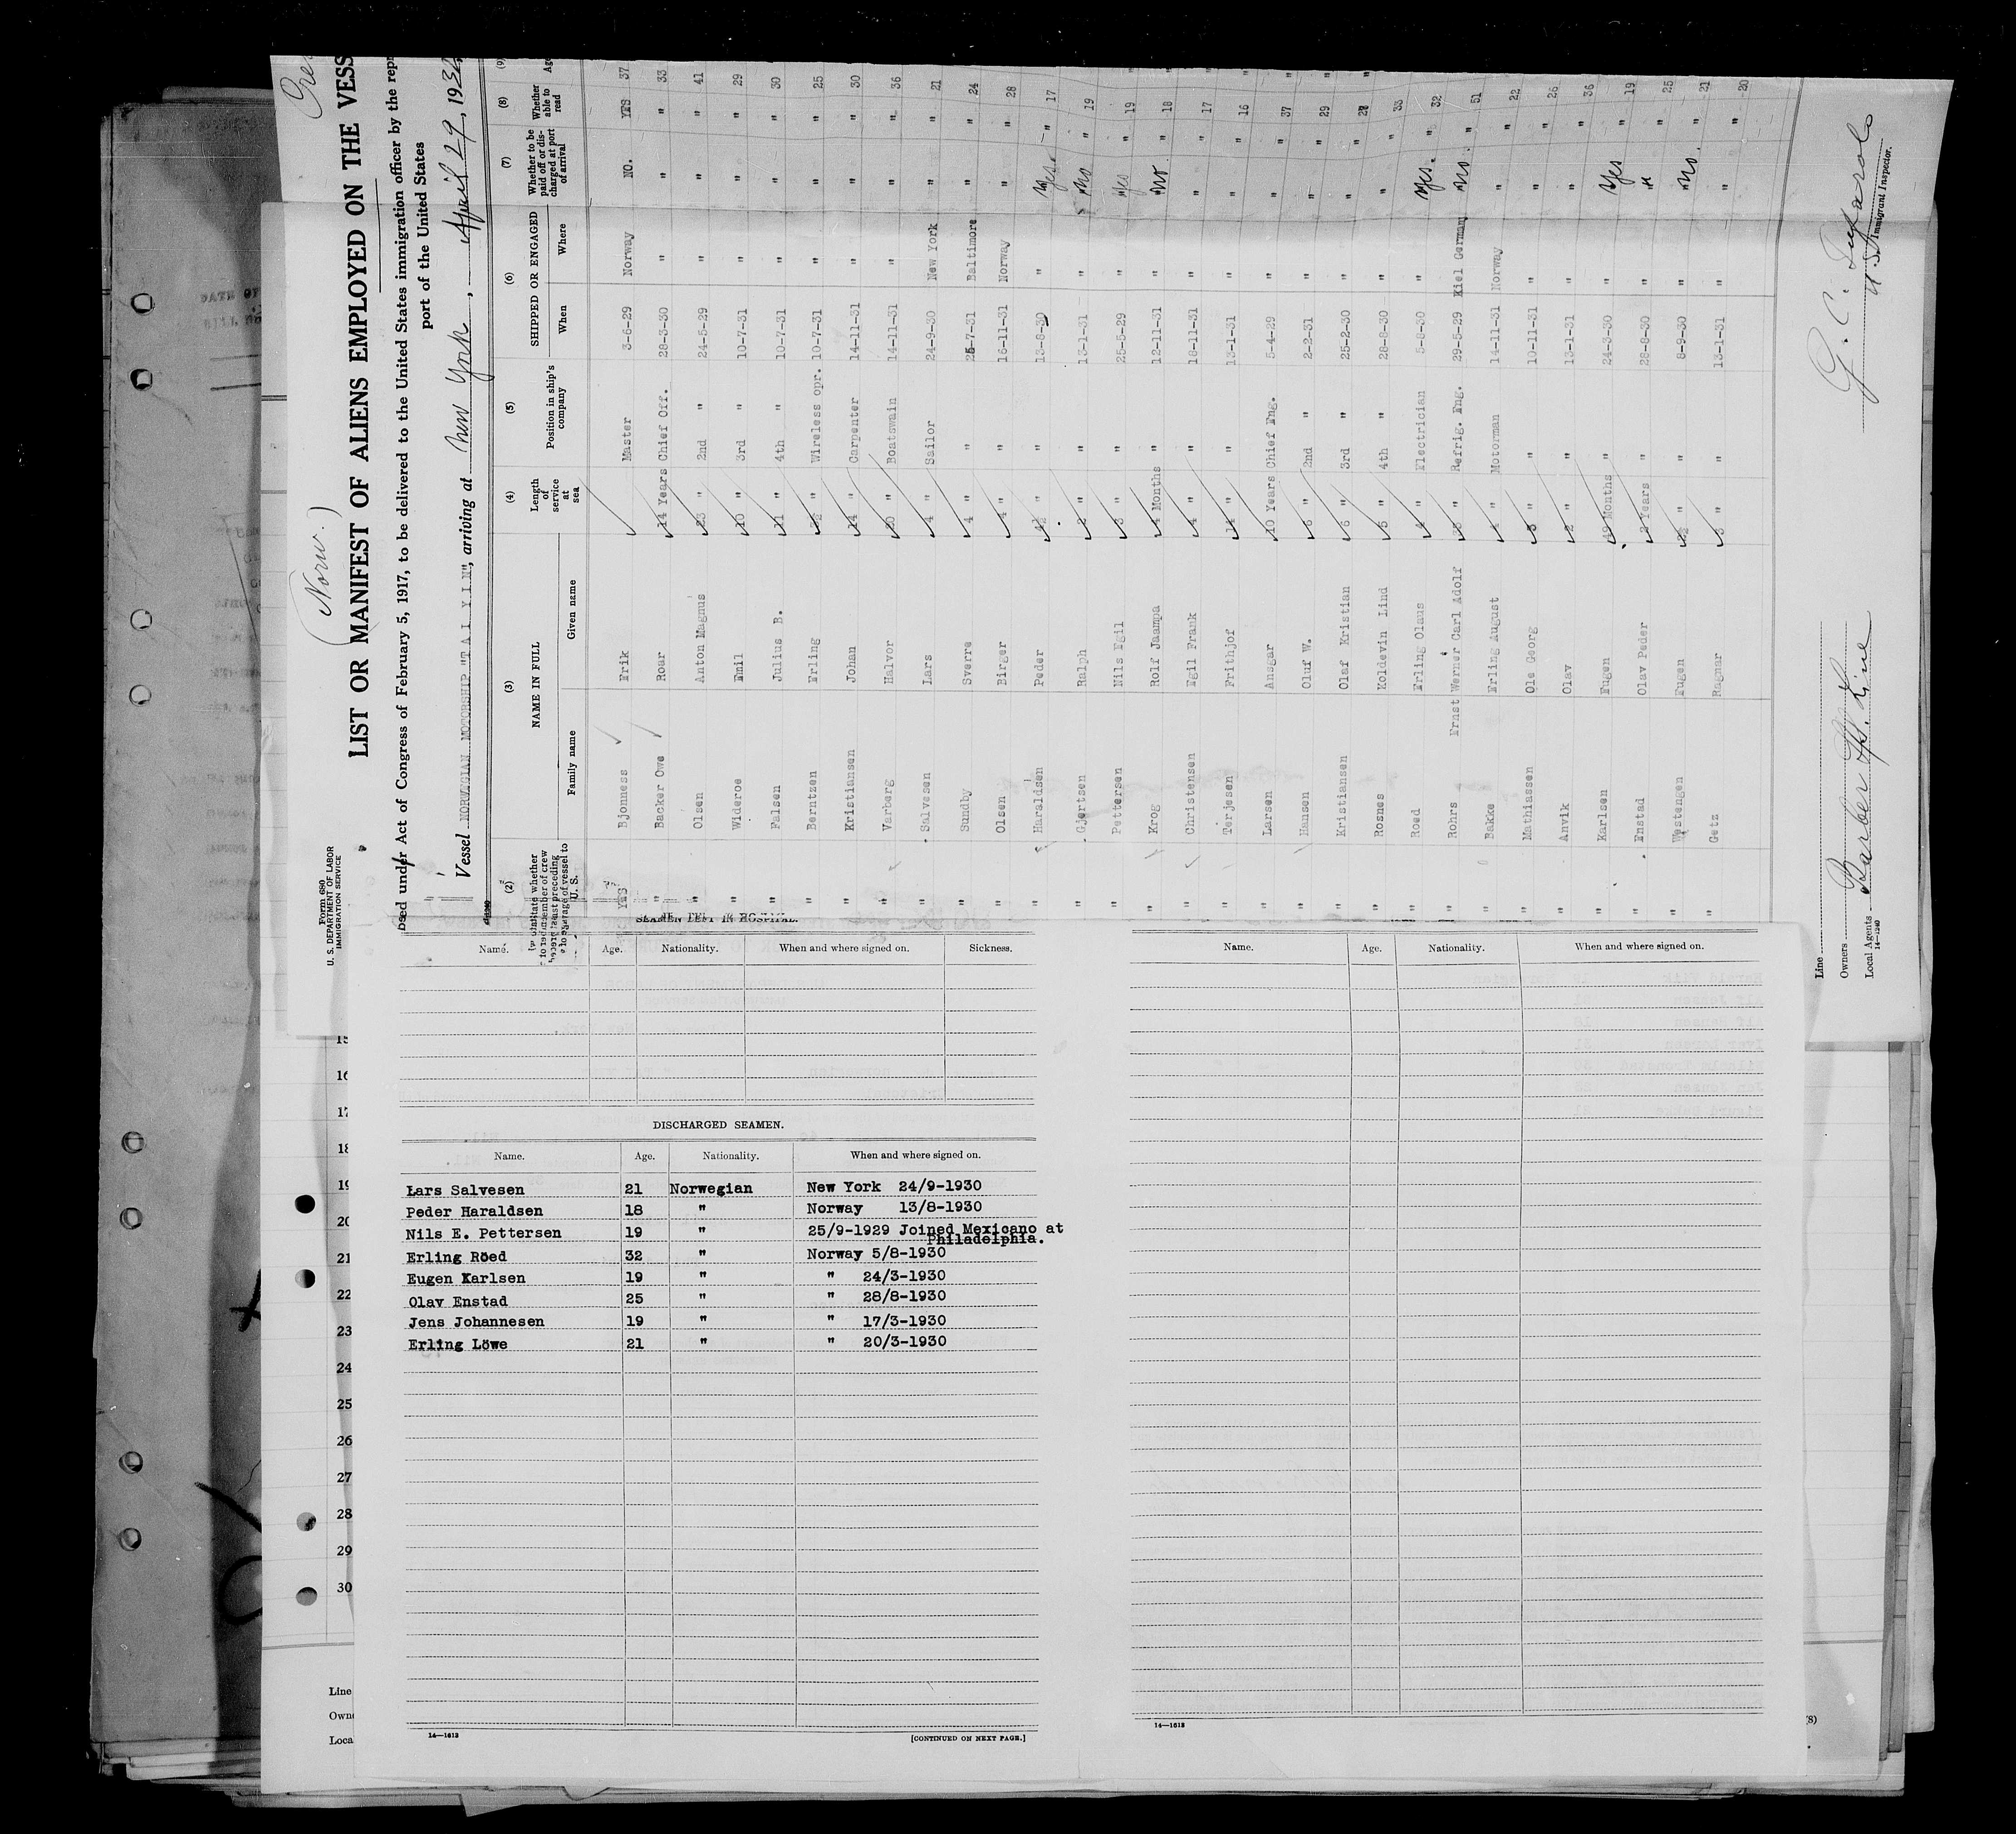 Form 680
U. S. DEPARTMENT OF LABOR
IMMIGRATION SERVICE
(Norw.)
LIST OR MANIFEST OF ALIENS EMPLOYED ON THE VESS
Act of Congress of February 5, 1917, to be delivered to the United States immigration officer by the repr
port of the United States
Vessel NORWEGIAN MOTORSHIP "T A I Y I N", arriving at New York, April 29, 193
(2) (3) (4) (5) (6) (7) (8) (9)
NAME IN FULL
Family name Given name
Length of service at sea
Position in ship's company
SHIPPED OR ENGAGED
When Where
Whether to be paid off or discharged at port of arrival
Whether able to read
Age
YES Bjonness Erik Master 3-6-29 Norway NO. YES 37
" Backer Owe Roar 14 Years Chief Off. 28-3-30 " " " 33
" Olsen Anton Magnus 23 " 2nd " 24-5-29 " " " 41
" Wideroe Emil 10 " 3rd " 10-7-31 " " " 29
" Falsen Julius B. 11 " 4th " 10-7-31 " " " 30
" Berntzen Erling " Wireless opr. 10-7-31 " " " 25
" Kristiansen Johan 14 " Carpenter 14-11-31 " " " 30
" Varberg Halvor 20 " Boatswain 14-11-31 " " " 36
" Salvesen Lars 4 " Sailor 24-9-30 New York " " 21
" Sundby Sverre 4 " " 25-7-31 Baltimore " " 24
" Olsen Birger 4 " " 16-11-31 Norway " " 28
" Haraldsen Peder " " 13-8-30 " Yes. " 17
" Gjertsen Ralph 2 " " 13-1-31 " No " 19
" Pettersen Nils Egil 3 " " 25-5-29 " Yes " 19
" Krog Rolf Jaampa 4 Months " 12-11-31 " No " 18
" Christensen Egil Frank 4 " " 18-11-31 " " " 17
" Terjesen Frithjof " " 13-1-31 " " " 16
" Larsen Ansgar 10 Years Chief Eng. 5-4-29 " " " 37
" Hansen Oluf W. 6 " 2nd " 2-2-31 " " " 29
" Kristiansen Olaf Kristian 6 " 3rd " 25-2-30 " " " 28
" Rosnes Koldevin Lind 5 " 4th " 28-8-30 " " " 33
" Roed Erling Olaus 4 " Electrician 5-8-30 " Yes. " 32
" Rohrs Ernst Werner Carl Adolf " Refrig. Eng. 29-5-29 Kiel Germany No. " 51
" Bakke Erling August 4 " Motorman 14-11-31 Norway " " 22
" Mathiassen Ole Georg 3 " " 10-11-31 " " " 26
" Anvik Olav 2 " " 13-1-31 " " " 36
" Karlsen Eugen Months " 24-3-30 " Yes " 19
" Enstad Olav Peder 2 Years " 28-8-30 " " " 25
" Westengen Eugen " " 8-9-30 " No. " 21
" Getz Ragnar 3 " " 13-1-31 " " " 20
Line
Owners
Local Agents Barber SS. Line
14—1240
U. S. Immigrant Inspector.
SEAMEN LEFT IN HOSPITAL.
Name. Age. Nationality. When and where signed on. Sickness.
DISCHARGED SEAMEN.
Name. Age. Nationality. When and where signed on.
Lars Salvesen 21 Norwegian New York 24/9-1930
Peder Haraldsen 18 " Norway 13/8-1930
Nils E. Pettersen 19 " 25/9-1929 Joined Mexicano at
Philadelphia.
Erling Röed 32 " Norway 5/8-1930
Eugen Karlsen 19 " " 24/3-1930
Olav Enstad 25 " " 28/8-1930
Jens Johannesen 19 " " 17/3-1930
Erling Löwe 21 " " 20/3-1930
14—1612
[CONTINUED ON NEXT PAGE.]
Name. Age. Nationality. When and where signed on.
14—1612
15
16
17
18
19
20
21
22
23
24
25
26
27
28
29
30
Line
Own
Loca